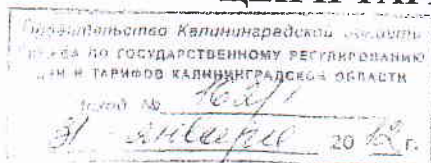 Правительство Калининградской области
СЛУЖБА ПО ГОСУДАРСТВЕННОМУ РЕГУЛИРОВАНИЮ
ЦЕН И ТАРИФОВ КАЛИНИНГРАДСКОЙ ОБЛАСТИ
№
31 января 2012 г.